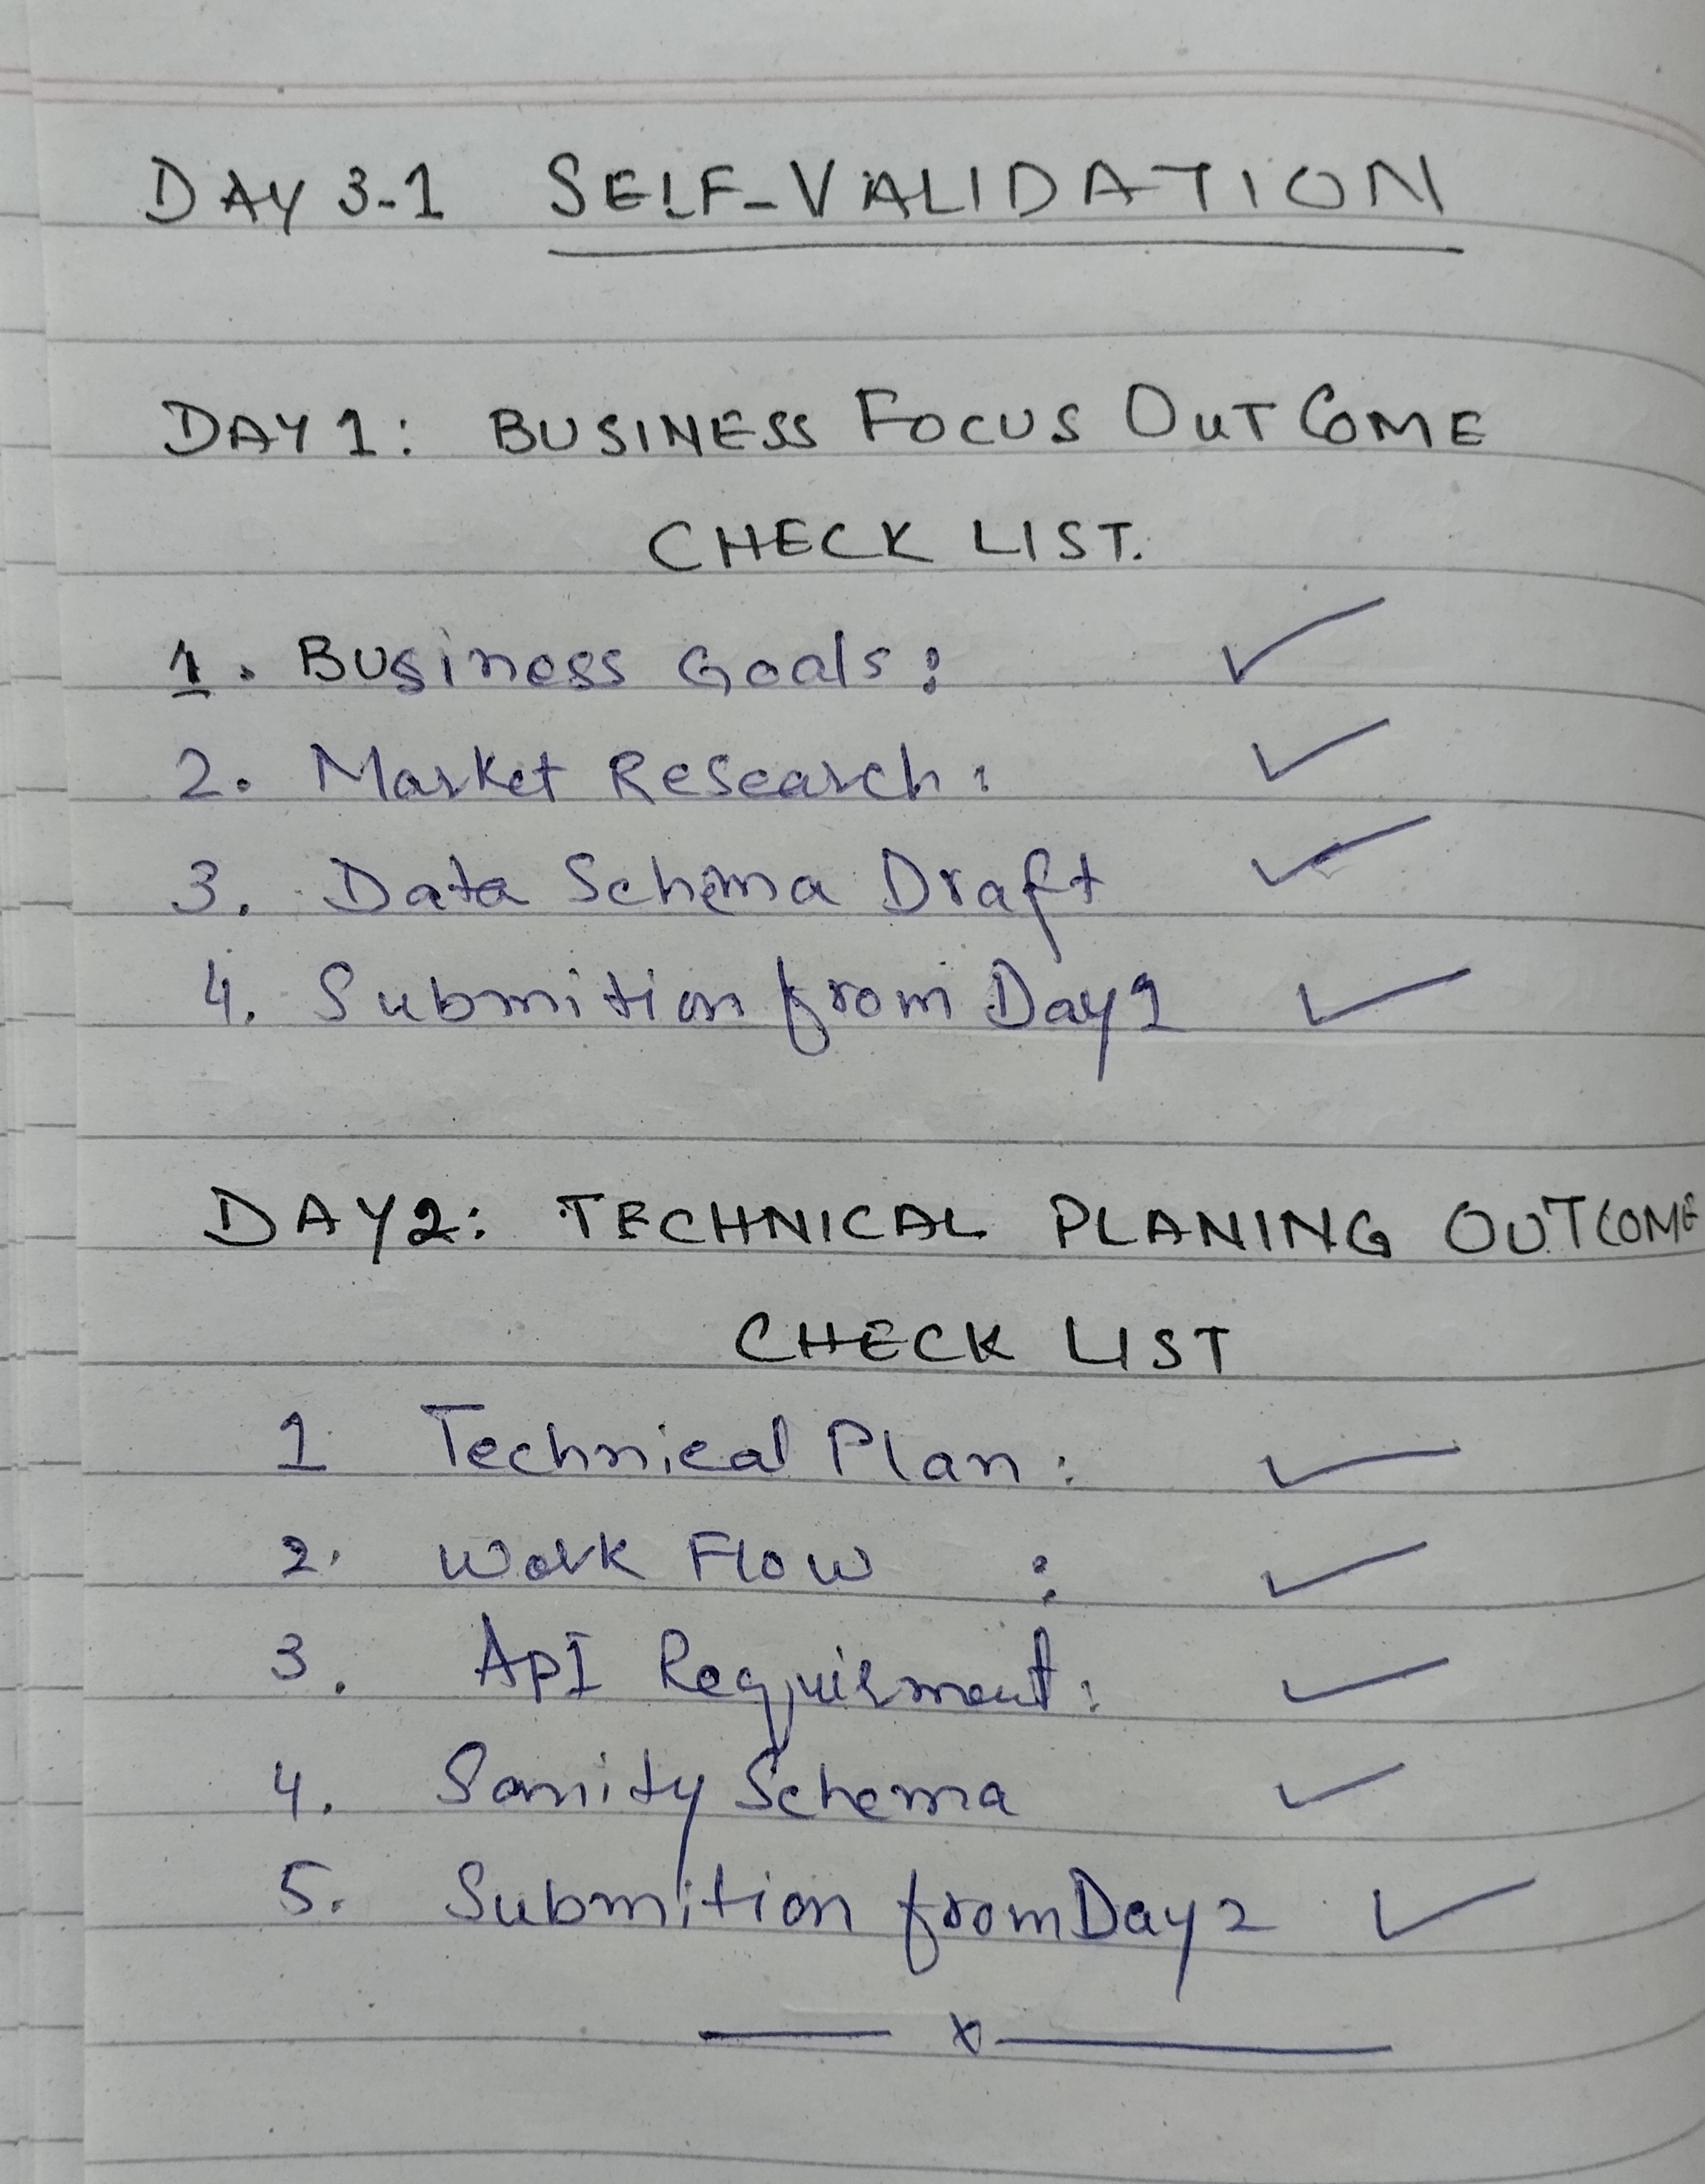 DAY 3-1 SELF-VALIDATION
DAY 1: BUSINESS FOCUS OUTCOME
CHECK LIST.
1. Business Goals: ✓
2. Market Research: ✓
3. Data Schema Draft ✓
4. Submition from Day 1 ✓
DAY 2: TECHNICAL PLANING OUTCOME
CHECK LIST
1 Technical Plan: ✓
2. Work Flow : ✓
3. ApI Requirment: ✓
4. Sanity Schema ✓
5. Submition from Day 2 ✓